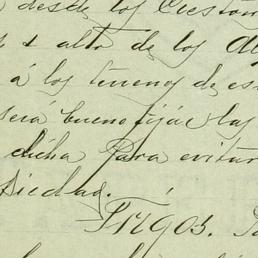 desde los
y alto de los
á los terrenos de es
será bueno fijár las
dicha para evitar
piedad.
Trigos.